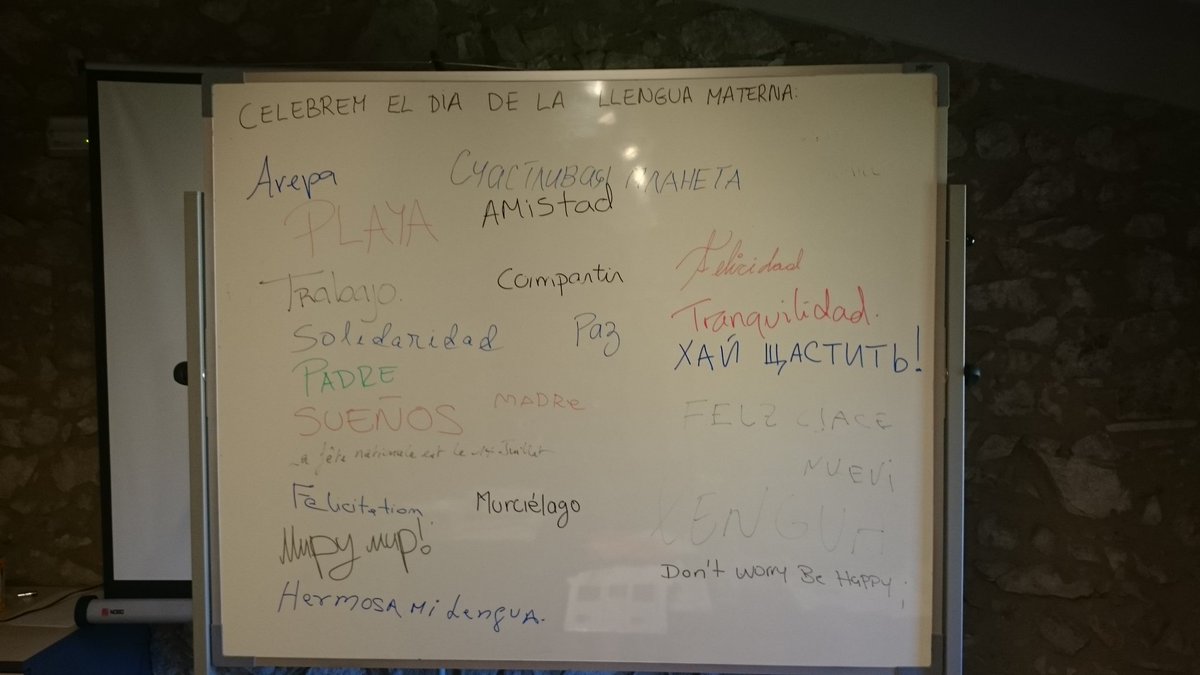 CELEBREM EL DIA DE LA LLENGUA MATERNA:
Arepa
Счастливая планета
PLAYA
AMistad
Felicidad
Trabajo.
Compartir
Tranquilidad.
Solidaridad
Paz
ХАЙ ЩАСТИТЬ!
PADRE
SUEÑOS
MADRe
FELZ
La fête nationale est le 14 Juillet
NUEVI
Felicitation
Murciélago
LENGUA
Миру мир!
Don't worry Be Happy
HermosA Mi LenguA.
NOBO